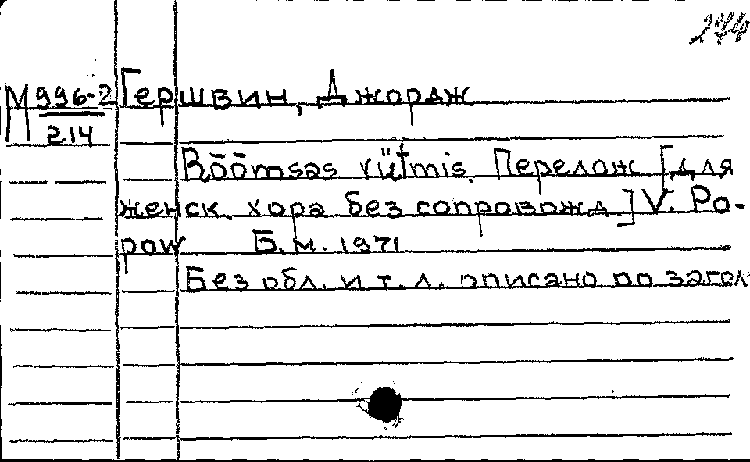 274
М 996-2 Гершвин, Джордж
214
Rõõmsas rütmis. Перелож [для
женск. хора без сопровожд.] V. Po-
pow Б.м. 1971
Без обл. и т. л. описано по загол